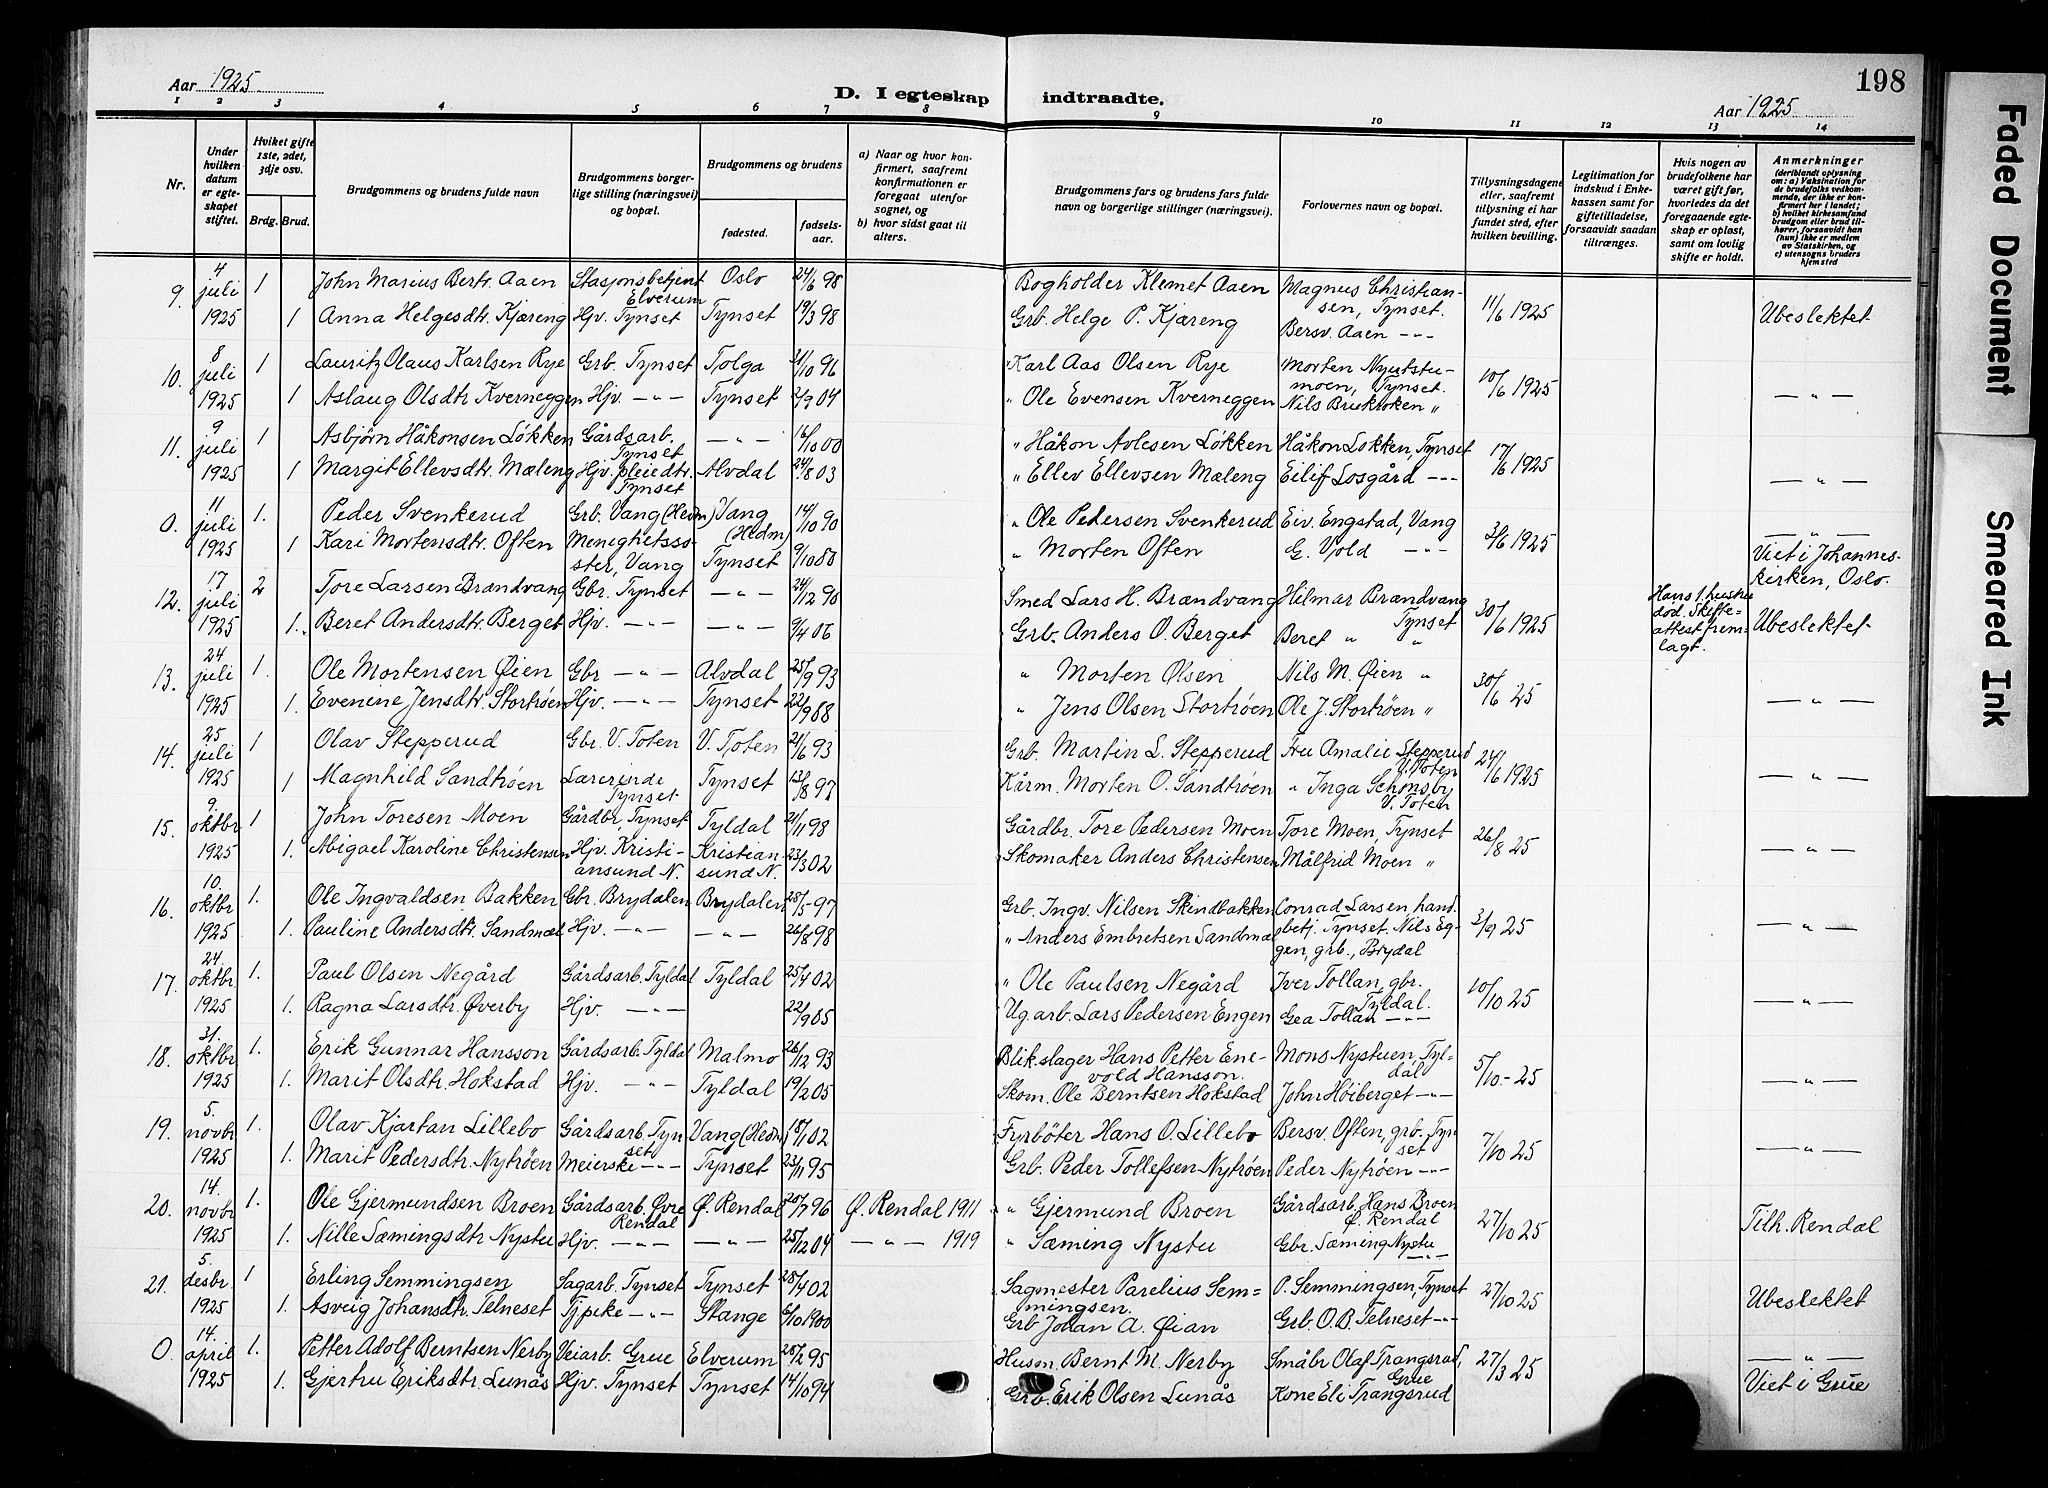 198
Aar 1925.
D. I egteskap indtraadte.
Aar 1925
1 2 3 4 5 6 7 8 9 10 11 12 13 14
Nr.
Under hvilken datum er egteskapet stiftet.
Hviket gifte 1ste, 2det, 3dje osv.
Brdg. Brud.
Brudgommens og brudens fulde navn
Brudgommens borgerlige stilling (næringsvei) og bopæl.
Brudgommens og brudens
fødested.
fødselsaar.
a) Naar og hvor konfirmert, saafremt konfirmationen er foregaat utenfor sognet, og
b) hvor sidst gaat til alters.
Brudgommens fars og brudens fars fulde navn og borgerlige stillinger (næringsvei).
Forlovernes navn og bopæl.
Tillysningsdagene eller, saafremt tillysning ei har fundet sted, efter hvilken bevilling.
Legitimation for indskud i Enkekassen samt for giftetilladelse, forsaavidt saadan tiltrænges.
Hvis nogen av brudefolkene har været gift før, hvorledes da det foregaaende egteskap er opløst, samt om lovlig skifte er holdt.
Anmerkninger (deriblandt oplysning om: a) Vaksination for de brudefolks vedkommende, der ikke er konfirmert her i landet; b) hvilket kirkesamfund brudgom eller brud tilhører, forsaavidt han (hun) ikke er medlem av Statskirken, og c) utensogns bruders hjemsted
9. 4 juli 1925 1 John Marius Bertr. Aaen Stasjonsbetjent Elverum Oslo 24/6 98 Bogholder Klemet Aaen Magnus Christiansen, Tynset. 11/6 1925 Ubeslektet
1 Anna Helgesdtr. Kjæreng Hjv. Tynset Tynset 19/3 98 Grb. Helge P. Kjæreng Bersv. Aaen -"-
10. 8 juli 1925 1 Lauritz Olaus Karlsen Rye Grb. Tynset Tolga 31/10 96 " Karl Aas Olsen Rye Morten Nyutstumoen, Tynset. 10/6 1925 -"-
1 Aslaug Olsdtr. Kverneggen Hjv. -"- Tynset 21/9 04 " Ole Evensen Kverneggen Nils Brukroken "
11. 9 juli 1925 1 Asbjørn Håkonsen Løkken Gårdsarb. Tynset -"- 16/10 00 " Håkon Avlesen Løkken Håkon Løkken, Tynset 17/6 1925 -"-
1 Margit Ellevsdtr. Mæleng Hjv. pleiedtr. Tynset Alvdal 24/8 03 " Ellev Ellevsen Mæleng Eilif Losgård -"-
0. 11 juli 1925 1. Peder Svenkerud Grb. Vang (Hedm) Vang (Hedm) 14/10 90 " Ole Pedersen Svenkerud Eiv. Engstad, Vang 3/6 1925 -"-
1 Kari Mortensdtr. Often Menighetssøster, Vang Tynset 9/10 88 " Morten Often G. Vold -"- Viet i Johanneskirken, Oslo.
12. 17 juli 1925 2 Tore Larsen Brændvang Gbr. Tynset -"- 24/12 90 Smed Lars H. Brændvang Hilmar Brændvang Tynset 30/6 1925 Hans 1. hustru død. Skifteattest fremlagt. Ubeslektet
1. Beret Andersdtr. Berget Hjv. -"- -"- 9/4 06 Grb. Anders O. Berget Beret " "
13. 24 juli 1925 1. Ole Mortensen Øien Gbr -"- Alvdal 25/9 93 " Morten Olsen Nils M. Øien " 30/6 25 -"-
1. Evenine Jensdtr. Stortrøen Hjv. -"- Tynset 22/9 88 " Jens Olsen Stortrøen Ole J. Stortrøen "
14. 25 juli 1925 1 Olav Stepperud Gbr. V. Toten V. Toten 21/6 93 Grb. Martin L. Stepperud Fru Amalie Stepperud V. Toten 24/6 1925 -"-
1 Magnhild Sandtrøen Lærerinde Tynset Tynset 13/8 97 Kårm. Morten O. Sandtrøen " Inga Schønsby V. Toten
15. 9. oktbr 1925 1 John Toresen Moen Gårdbr, Tynset Tyldal 21/11 98 Gårdbr. Tore Pedersen Moen Tore Moen, Tynset 26/8 25 -"-
1. Abigael Karoline Christensen Hjv. Kristiansund N. Kristiansund N. 23/3 02 Skomaker Anders Christensen Målfrid Moen "
16. 10. oktbr 1925 1. Ole Ingvaldsen Bakken Gbr. Brydalen Brydalen 28/5-97 Grb. Ingv. Nilsen Skindbakken Conrad Larsen, handbetj. Tynset. Nils Eggen, grb., Brydal 3/9 25 -"-
1. Pauline Andersdtr. Sandmæl Hjv. -"- -"- 26/8 98 " Anders Embretsen Sandmæl
17. 24. oktbr 1925 1. Paul Olsen Negård Gårdsarb. Tyldal Tyldal 25/4 02 " Ole Paulsen Negård Iver Tollan, gbr. Tyldal. 10/10 25 -"-
1. Ragna Larsdtr. Øverby Hjv. -"- 22/9 05 Ug. arb. Lars Pedersen Engen Gea Tollan -"-
18. 31. oktbr 1925 1. Erik Gunnar Hansson Gårdsarb. Tyldal Malmø 26/12 93 Blikslager Hans Petter Enevold Hansson. Mons Nystuen, Tyldal 5/10-25 -"-
1. Marit Olsdtr. Hokstad Hjv. -"- Tyldal 19/2 05 Skom. Ole Berntsen Hokstad John Høiberget -"-
19. 5. novbr 1925 1. Olav Kjartan Lillebo Gårdsarb. Tynset Vang (Hedm) 18/7 02 Fyrbøter Hans O. Lillebo Bersv. Often, grb. Tynset 7/10 25 -"-
1. Marit Pedersdtr. Nytrøen Meierske -"- Tynset 23/11 95 Grb. Peder Tollefsen Nytrøen Peder Nytrøen -"-
20. 14. novbr 1925 1. Ole Gjermundsen Broen Gårdsarb. Øvre Rendal Ø. Rendal 20/7 96 Ø. Rendal 1911 " Gjermund Broen Gårdsarb. Hans Broen Ø. Rendal 27/10 25 Tilh. Rendal
1. Nille Sæmingsdtr Nystu Hjv. -"- -"- 25/12 04 -"- 1919 " Sæming Nystu Gbr. Sæming Nystu -"-
21. 5. desbr. 1925 1 Erling Semmingsen Sagarb. Tynset Tynset 28/4 02 Sagmester Parelius Semmingsen. P. Semmingsen, Tynset 27/10 25 Ubeslektet
1. Asveig Johansdtr. Telneset Tjpike -"- Stange 6/10 1900 Grb Johan A. Øian Grb. O. B. Telneset -"-
0. 14. april 1925 1. Petter Adolf Berntsen Nerby Veiarb. Grue Elverum 28/2 95 Husm. Bernt M. Nerby Småbr Olaf Trangsrud, Grue 27/3 25 -"-
1. Gjertru Eriksdtr. Lunås Hjv. Tynset Tynset 14/10 94 Grb. Erik Olsen Lunås Kone Eli Trangsrud Viet i Grue
Faded Document
Smeared Ink